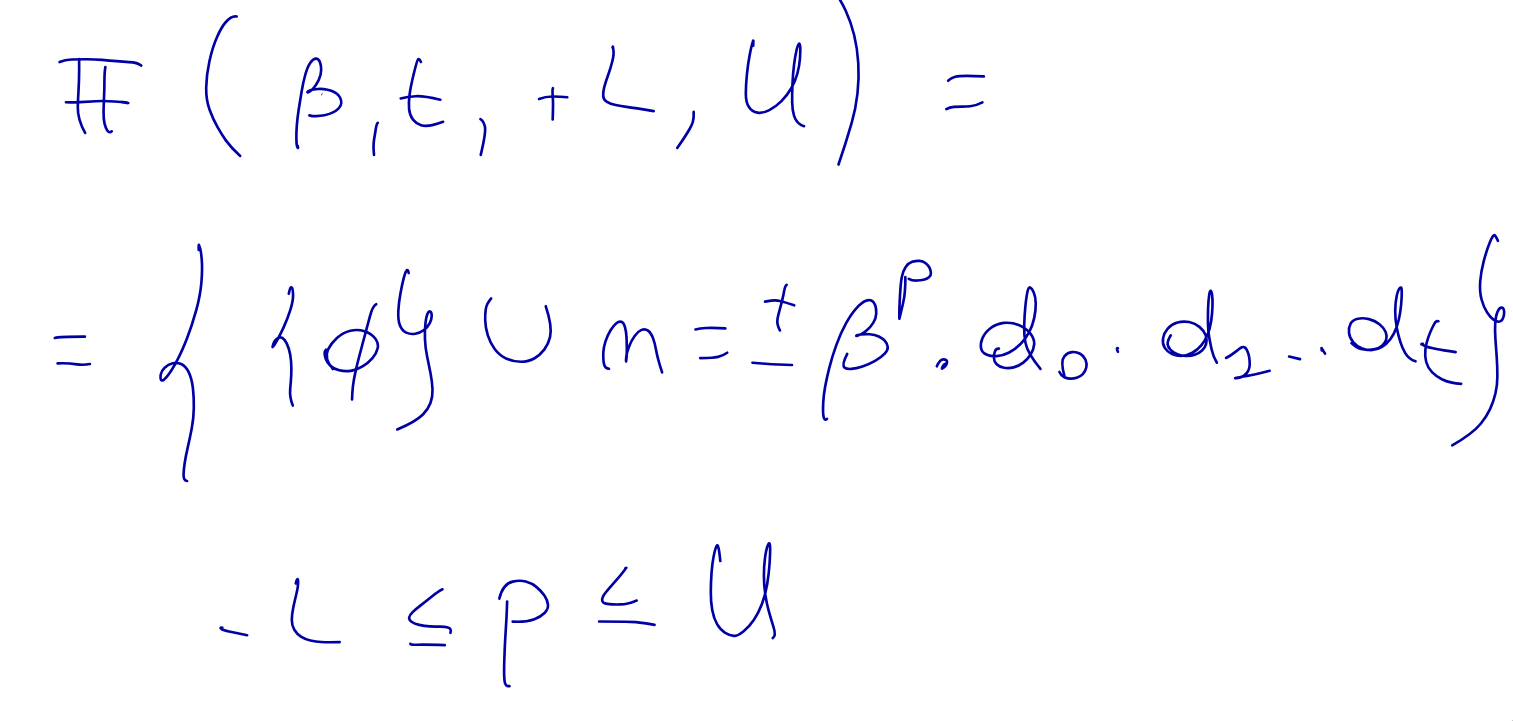 𝔽 ( β, t, + L, U ) =
= { {ϕ} ∪ n = ± β^p . d_0 . d_2 - . . d_t }
- L ≤ p ≤ U